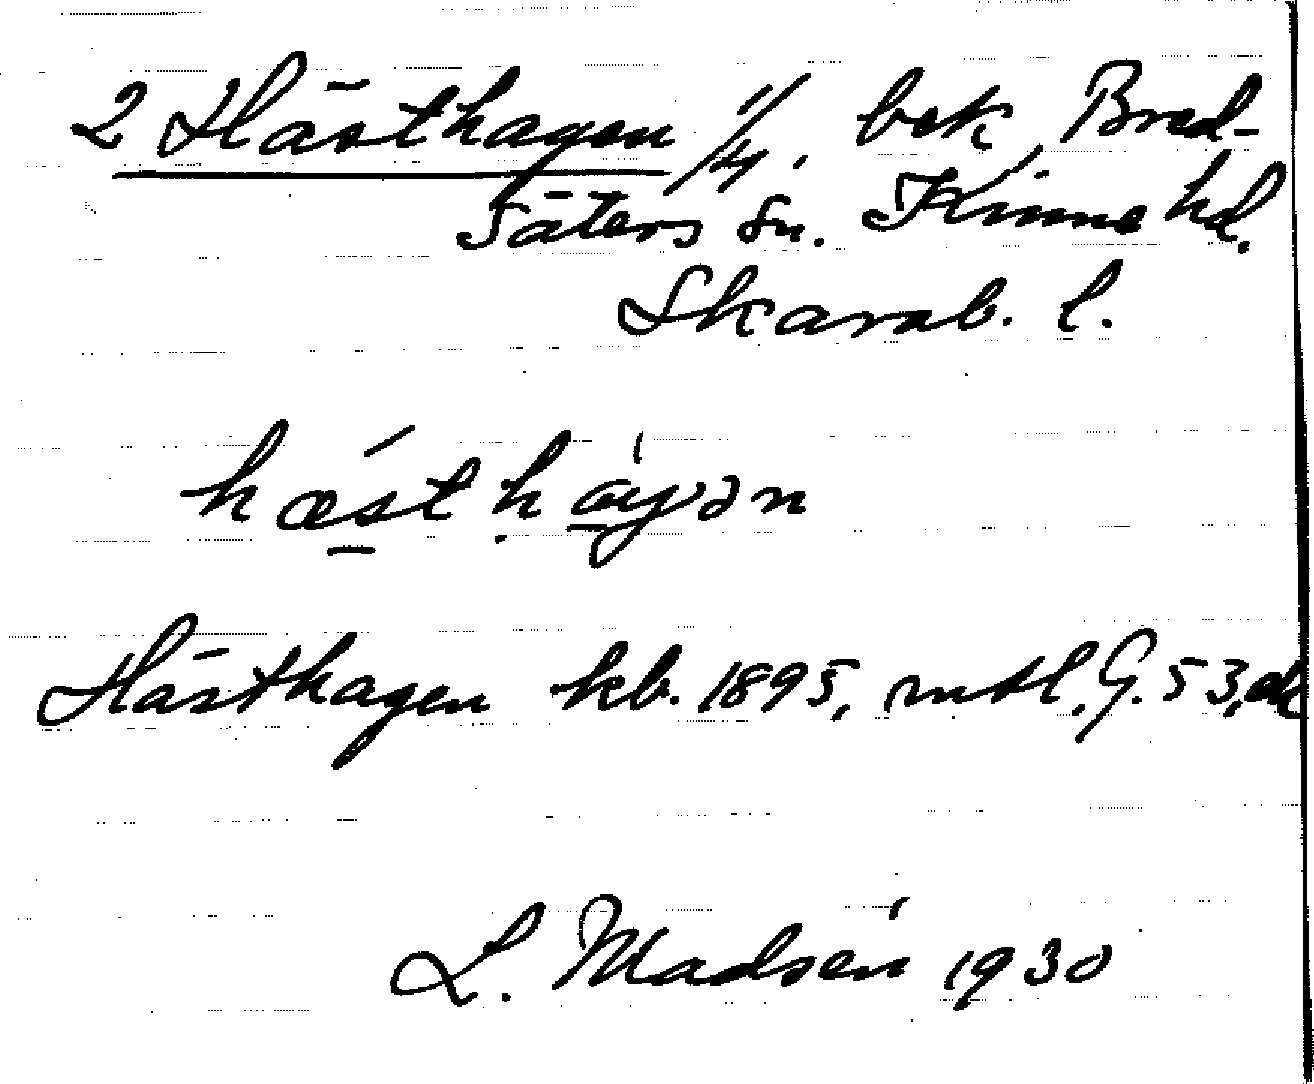 2 Hästhagen 1/4, bek Bred-
säters sn. Kinne hd.
Skarab. l.
hæsthaγən
Hästhagen kb. 1895, mtl, G. 53,
L. Madsén 1930